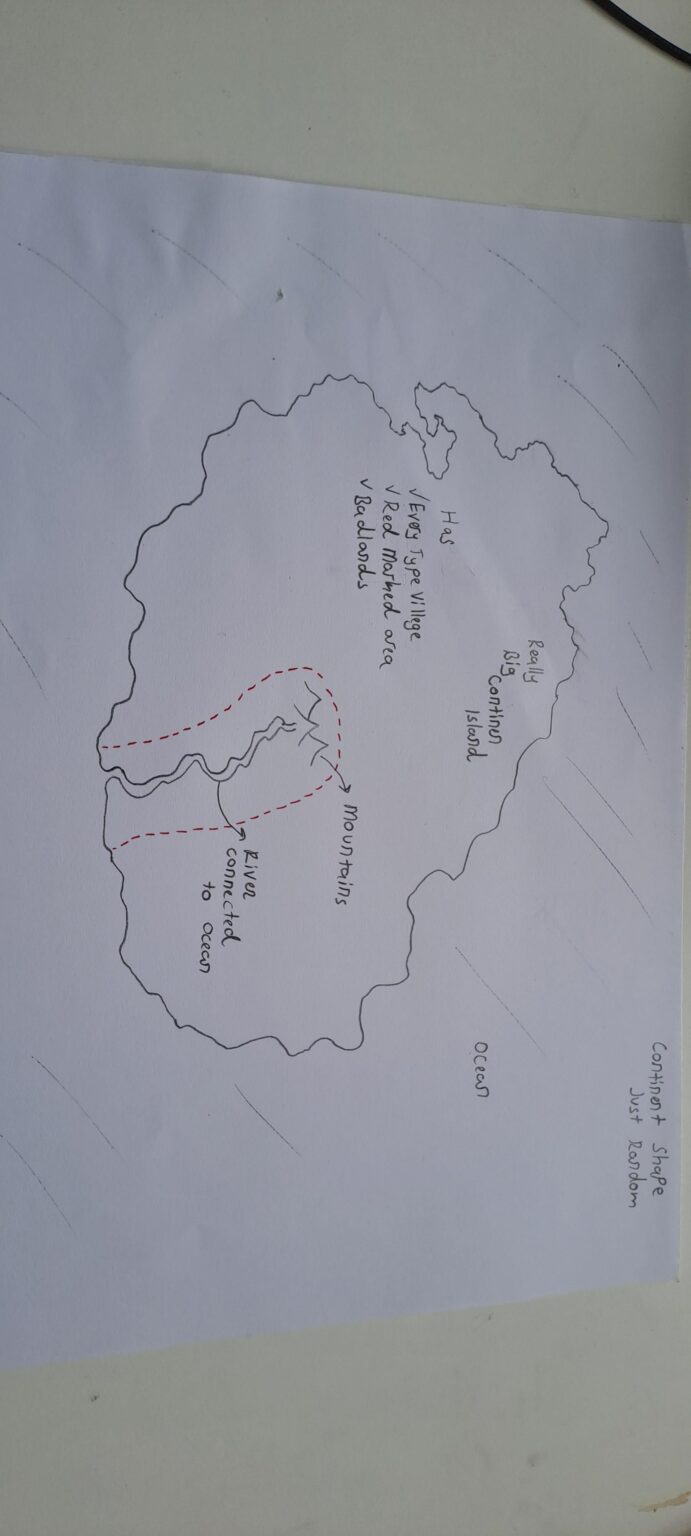 Continent Shape
Just Random
Ocean
Really
Big
Continen
Island
Has
✓ Every Type Villege
✓ Red Marked area
✓ Badlands
Mountains
River
connected
to ocean